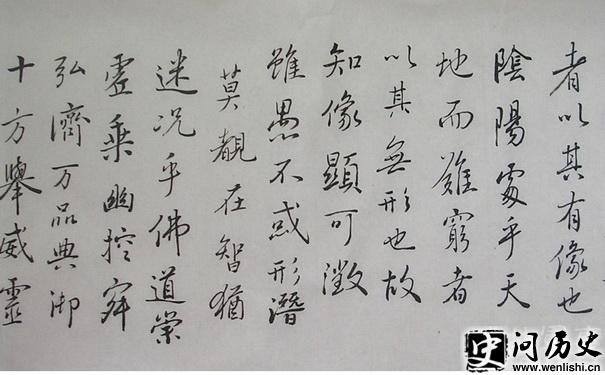 者以其有像也
陰陽處乎天
地而難窮者
以其無形也故
知像顯可徵
雖愚不惑形潛
莫覩在智猶
迷况乎佛道崇
虛乘幽控寂
弘濟万品典御
十方舉威靈
史问历史
www.wenlishi.cn